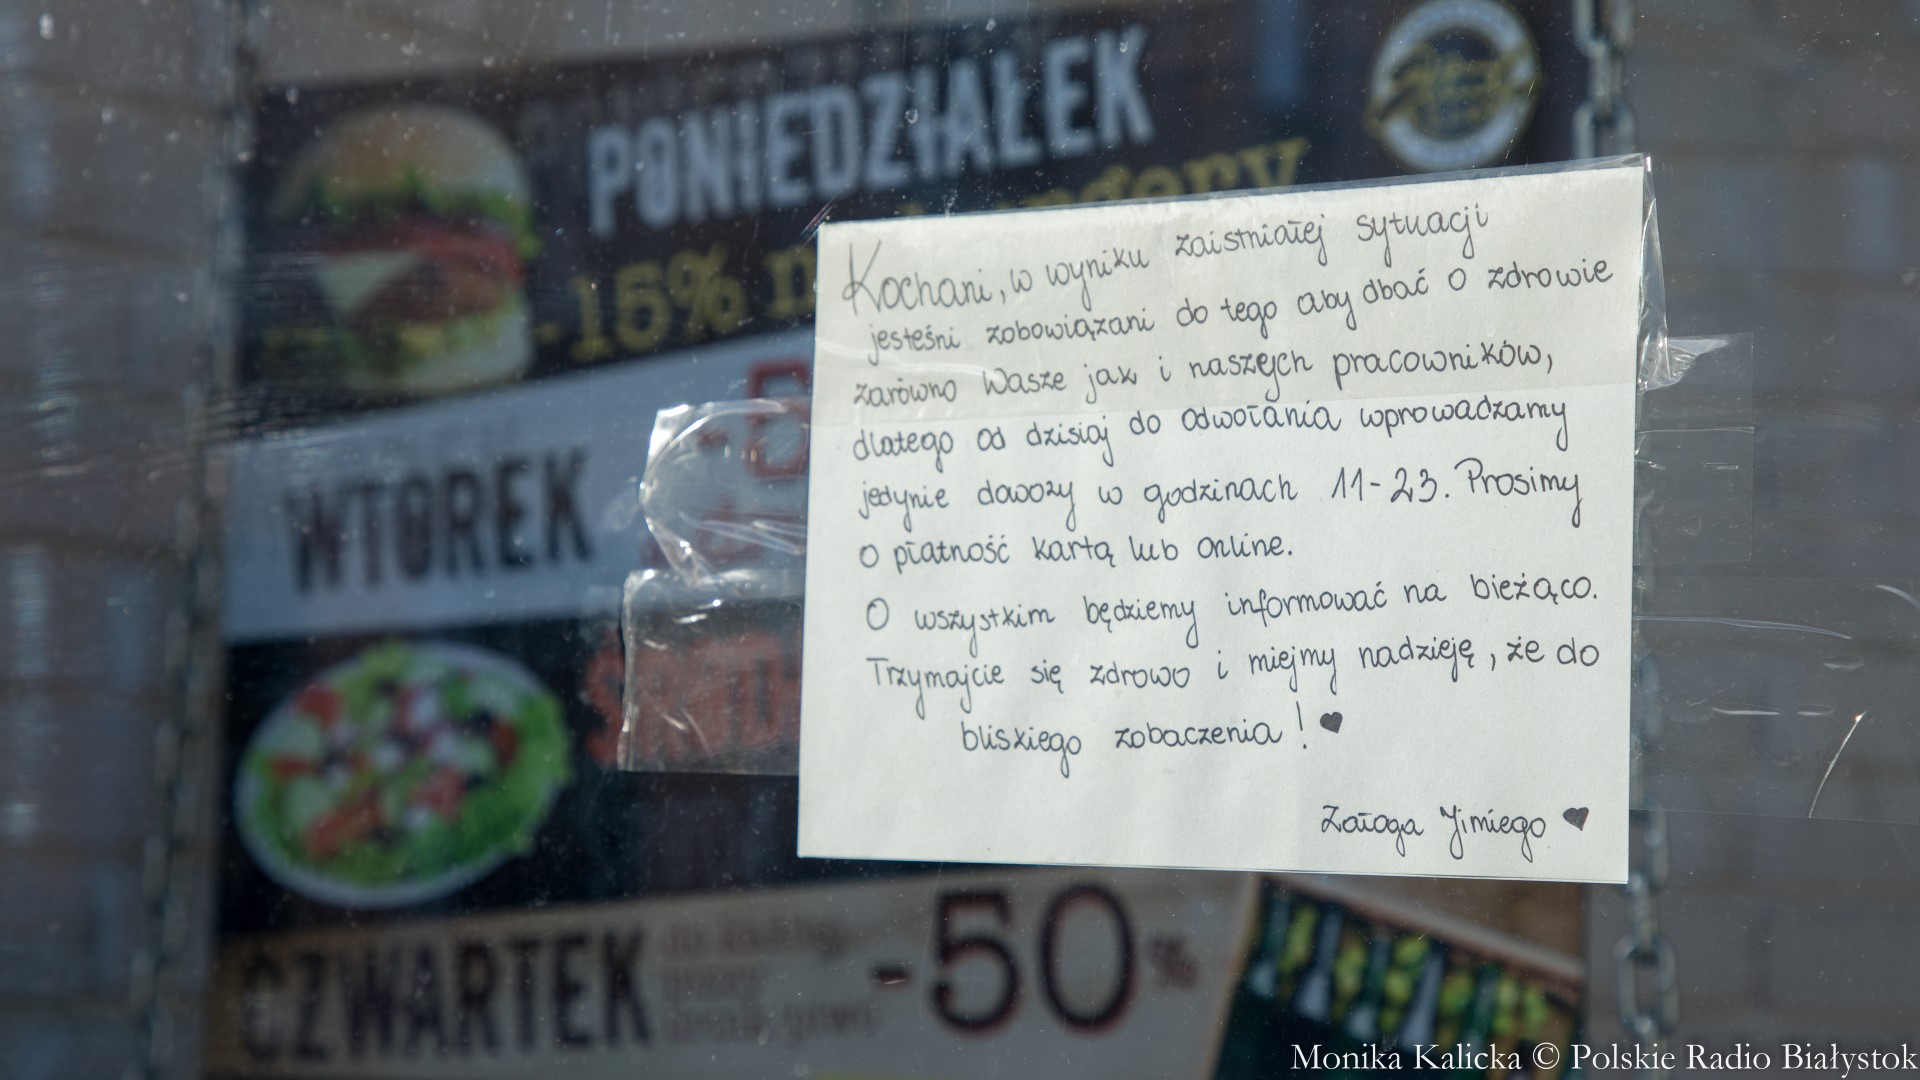 PONIEDZIAŁEK
-15% n
WTOREK
CZWARTEK
-50%
Kochani, w wyniku zaistniałej sytuacji
jesteśni zobowiązani do tego aby dbać o zdrowie
zarówno Wasze jak i naszejch pracowników,
dlatego od dzisiaj do odwołania wprowadzamy
jedynie dowozy w godzinach 11-23. Prosimy
o płatność kartą lub online.
O wszystkim będziemy informować na bieżąco.
Trzymajcie się zdrowo i miejmy nadzieję, że do
bliskiego zobaczenia! ♥
Załoga Jimiego ♥
Monika Kalicka © Polskie Radio Białystok